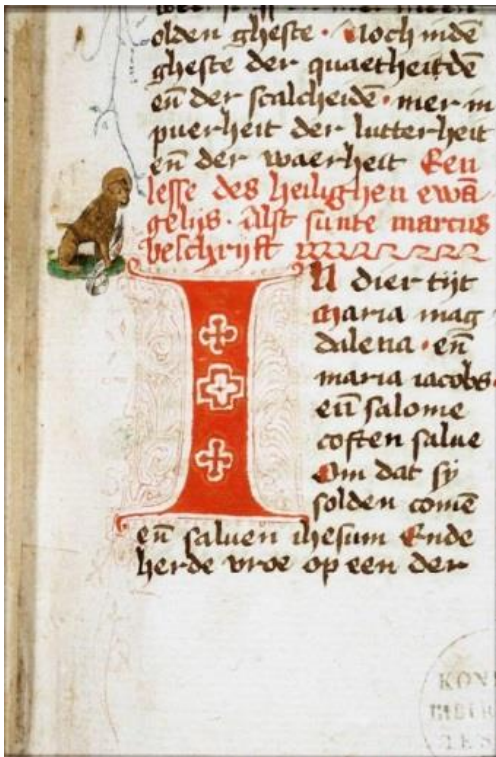 olden gheste · Noch indē
gheste der quaetheit dē
eñ der scalcheidē · mer in
puerheit der lutterheit
eñ der waerheit Een
lesse des heilighen ewā
gelijs · Alst sunte marcus
bescrijft
IN dier tijt
maria mag
dalena · eñ
maria iacobs ·
eñ salome
coften salue
Om dat sy
solden comē
eñ saluen ihesum Ende
herde vroe op een der
KON
BIBL